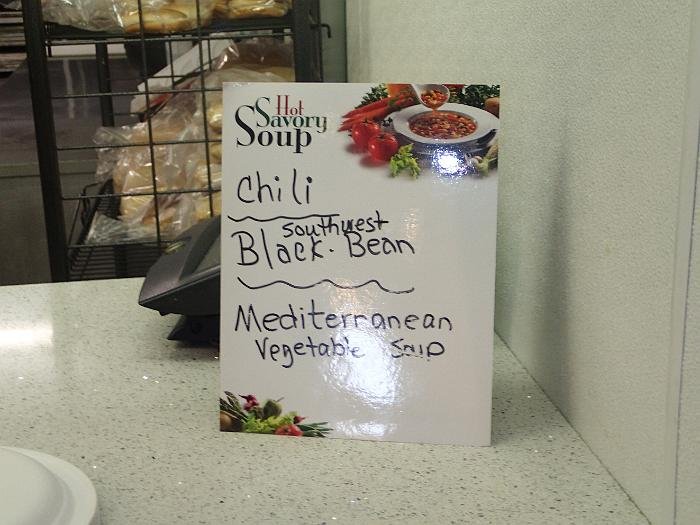 Hot
Savory
Soup
Chili
Southwest
Black. Bean
Mediterranean
Vegetable Soup